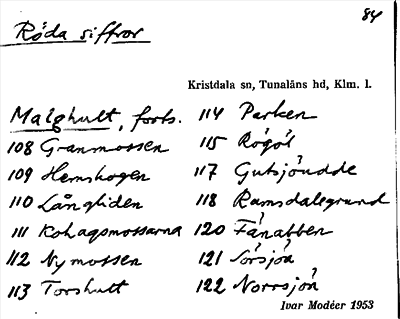 84
Röda siffror
Kristdala sn, Tunaläns hd, Klm. l.
Malghult, forts.
108 Granmossen
109 Hemshagen
110 Långliden
111 Kohagsmossarna
112 Nymossen
113 Torshult
114 Parken
115 Rögöl
117 Gutsjöudde
118 Ramsdalsgrund
120 Fånabben
121 Sörsjön
122 Norrsjön
Ivar Modéer 1953